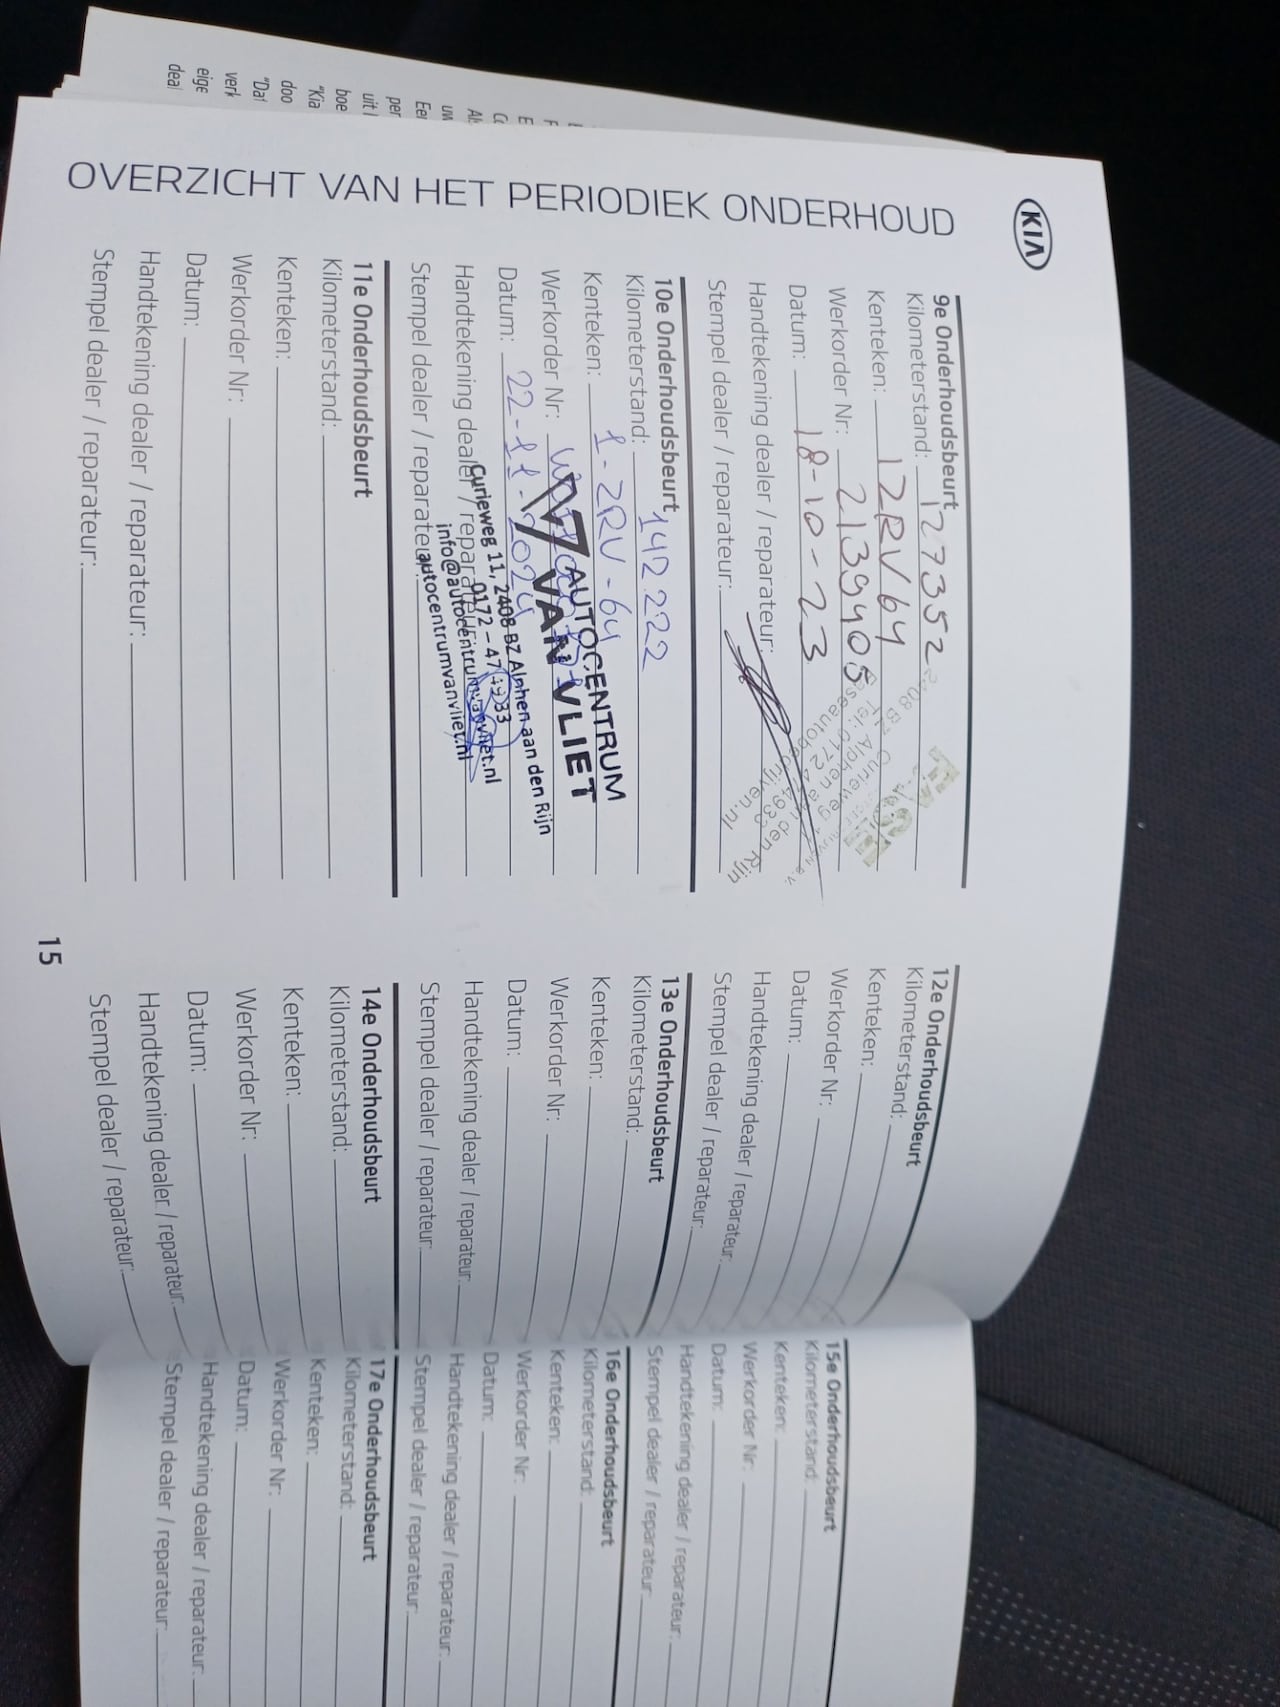 KIA
OVERZICHT VAN HET PERIODIEK ONDERHOUD
9e Onderhoudsbeurt
Kilometerstand: 127352
Kenteken: 12RV64
Werkorder Nr: 2139405
Datum: 18-10-23
Handtekening dealer / reparateur:
Stempel dealer / reparateur:
10e Onderhoudsbeurt
Kilometerstand: 142.222
Kenteken: 1-2RV-64
Werkorder Nr:
Datum: 22-11-2024
Handtekening dealer / reparateur:
Stempel dealer / reparateur:
AUTOCENTRUM
VAN VLIET
Curieweg 11, 2408 BZ Alphen aan den Rijn
0172 - 474933
info@autocentrumvanvliet.nl
autocentrumvanvliet.nl
11e Onderhoudsbeurt
Kilometerstand:
Kenteken:
Werkorder Nr:
Datum:
Handtekening dealer / reparateur:
Stempel dealer / reparateur:
12e Onderhoudsbeurt
Kilometerstand:
Kenteken:
Werkorder Nr:
Datum:
Handtekening dealer / reparateur:
Stempel dealer / reparateur:
13e Onderhoudsbeurt
Kilometerstand:
Kenteken:
Werkorder Nr:
Datum:
Handtekening dealer / reparateur:
Stempel dealer / reparateur:
14e Onderhoudsbeurt
Kilometerstand:
Kenteken:
Werkorder Nr:
Datum:
Handtekening dealer / reparateur:
Stempel dealer / reparateur:
15
15e Onderhoudsbeurt
Kilometerstand:
Kenteken:
Werkorder Nr:
Datum:
Handtekening dealer / reparateur:
Stempel dealer / reparateur:
16e Onderhoudsbeurt
Kilometerstand:
Kenteken:
Werkorder Nr:
Datum:
Handtekening dealer / reparateur:
Stempel dealer / reparateur:
17e Onderhoudsbeurt
Kilometerstand:
Kenteken:
Werkorder Nr:
Datum:
Handtekening dealer / reparateur:
Stempel dealer / reparateur: